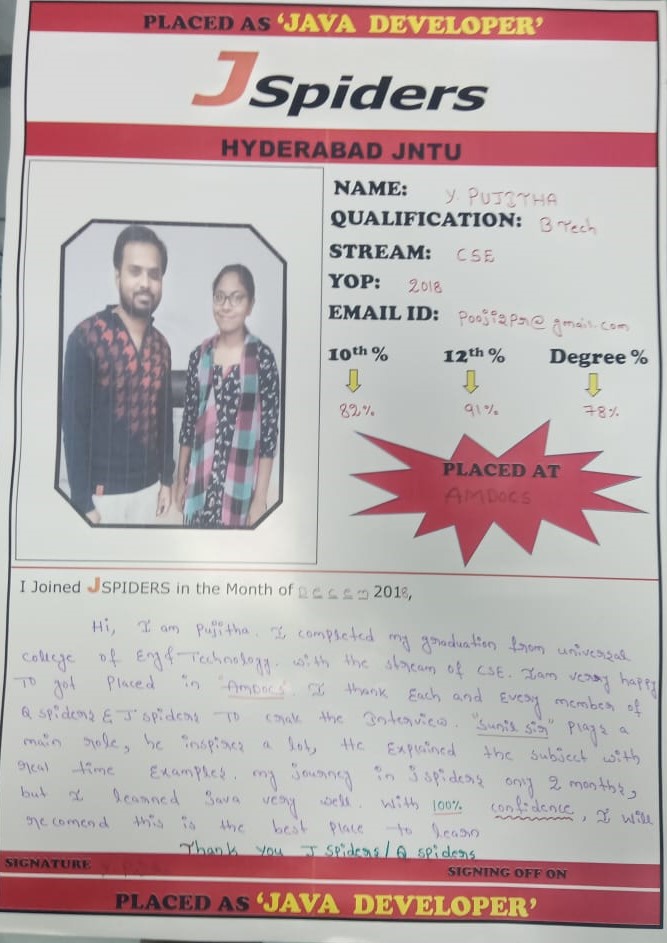 PLACED AS ‘JAVA DEVELOPER’
JSpiders
HYDERABAD JNTU
NAME: Y. PUJITHA
QUALIFICATION: B Tech
STREAM: CSE
YOP: 2018
EMAIL ID: @gmail.com
10th % 12th % Degree %
82% 91% 78%
PLACED AT
AMDOCS
I Joined JSPIDERS in the Month of Decem 2018,
Hi, I am Pujitha. I completed my graduation from universal
college of Eng & Technology. with the stream of CSE. I am verry happy
To got Placed in "AMDOCS". I thank Each and Every member of
Q spiders & J spiders To crak the Interview. "Sunil sir" Plays a
main role, he inspires a lot, He Explained the subject with
real time Examples. my Journey in J spiders only 2 months,
but I learned Java very well. With 100% confidence, I will
recomend this is the best Place to learn
Thank You J spiders/Q spiders
SIGNATURE
SIGNING OFF ON
PLACED AS ‘JAVA DEVELOPER’